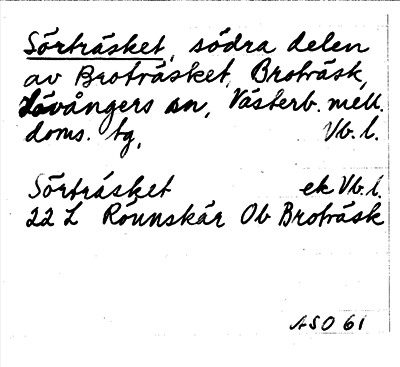 Sörträsket, södra delen
av Broträsket, Broträsk,
Lövångers sn, Västerb. mell.
doms. tg, Vb. l.
Sörträsket ek Vb. l.
22 L Rönnskär Ob Broträsk
ASO 61